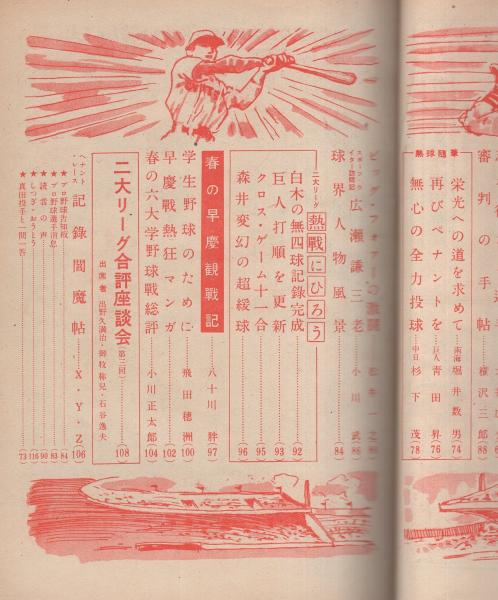 審判の手帖 横沢三郎(88)
熱球随筆
栄光への道を求めて 南海 堀井数男(74)
再びペナントを 巨人 青田昇(76)
無心の全力投球 中日 杉下茂(78)
ビッグ・フォアーの激闘
スポーツライター訪問記 広瀬謙三老
球界人物風景 小川武(84)
二大リーグ 熱戦にひろう
白木の無四球記録完成(92)
巨人打順を更新(93)
クロス・ゲーム十一合(95)
森井変幻の超緩球(96)
春の早慶観戦記 八十川胖(97)
学生野球のために 飛田穂洲(100)
早慶戦熱狂マンガ(102)
春の六大学野球戦総評 小川正太郎(104)
二大リーグ合評座談会(第三回)(108)
出席者 出野久満治・御牧称兒・石谷逸夫
ペナントレース 記録閻魔帖 X・Y・Z(106)
★プロ野球告知板(84)
★プロ野球選手消息(83)
★読者の声(90)
★しつぎ・おうとう(116)
★真田投手と一問一答(73)